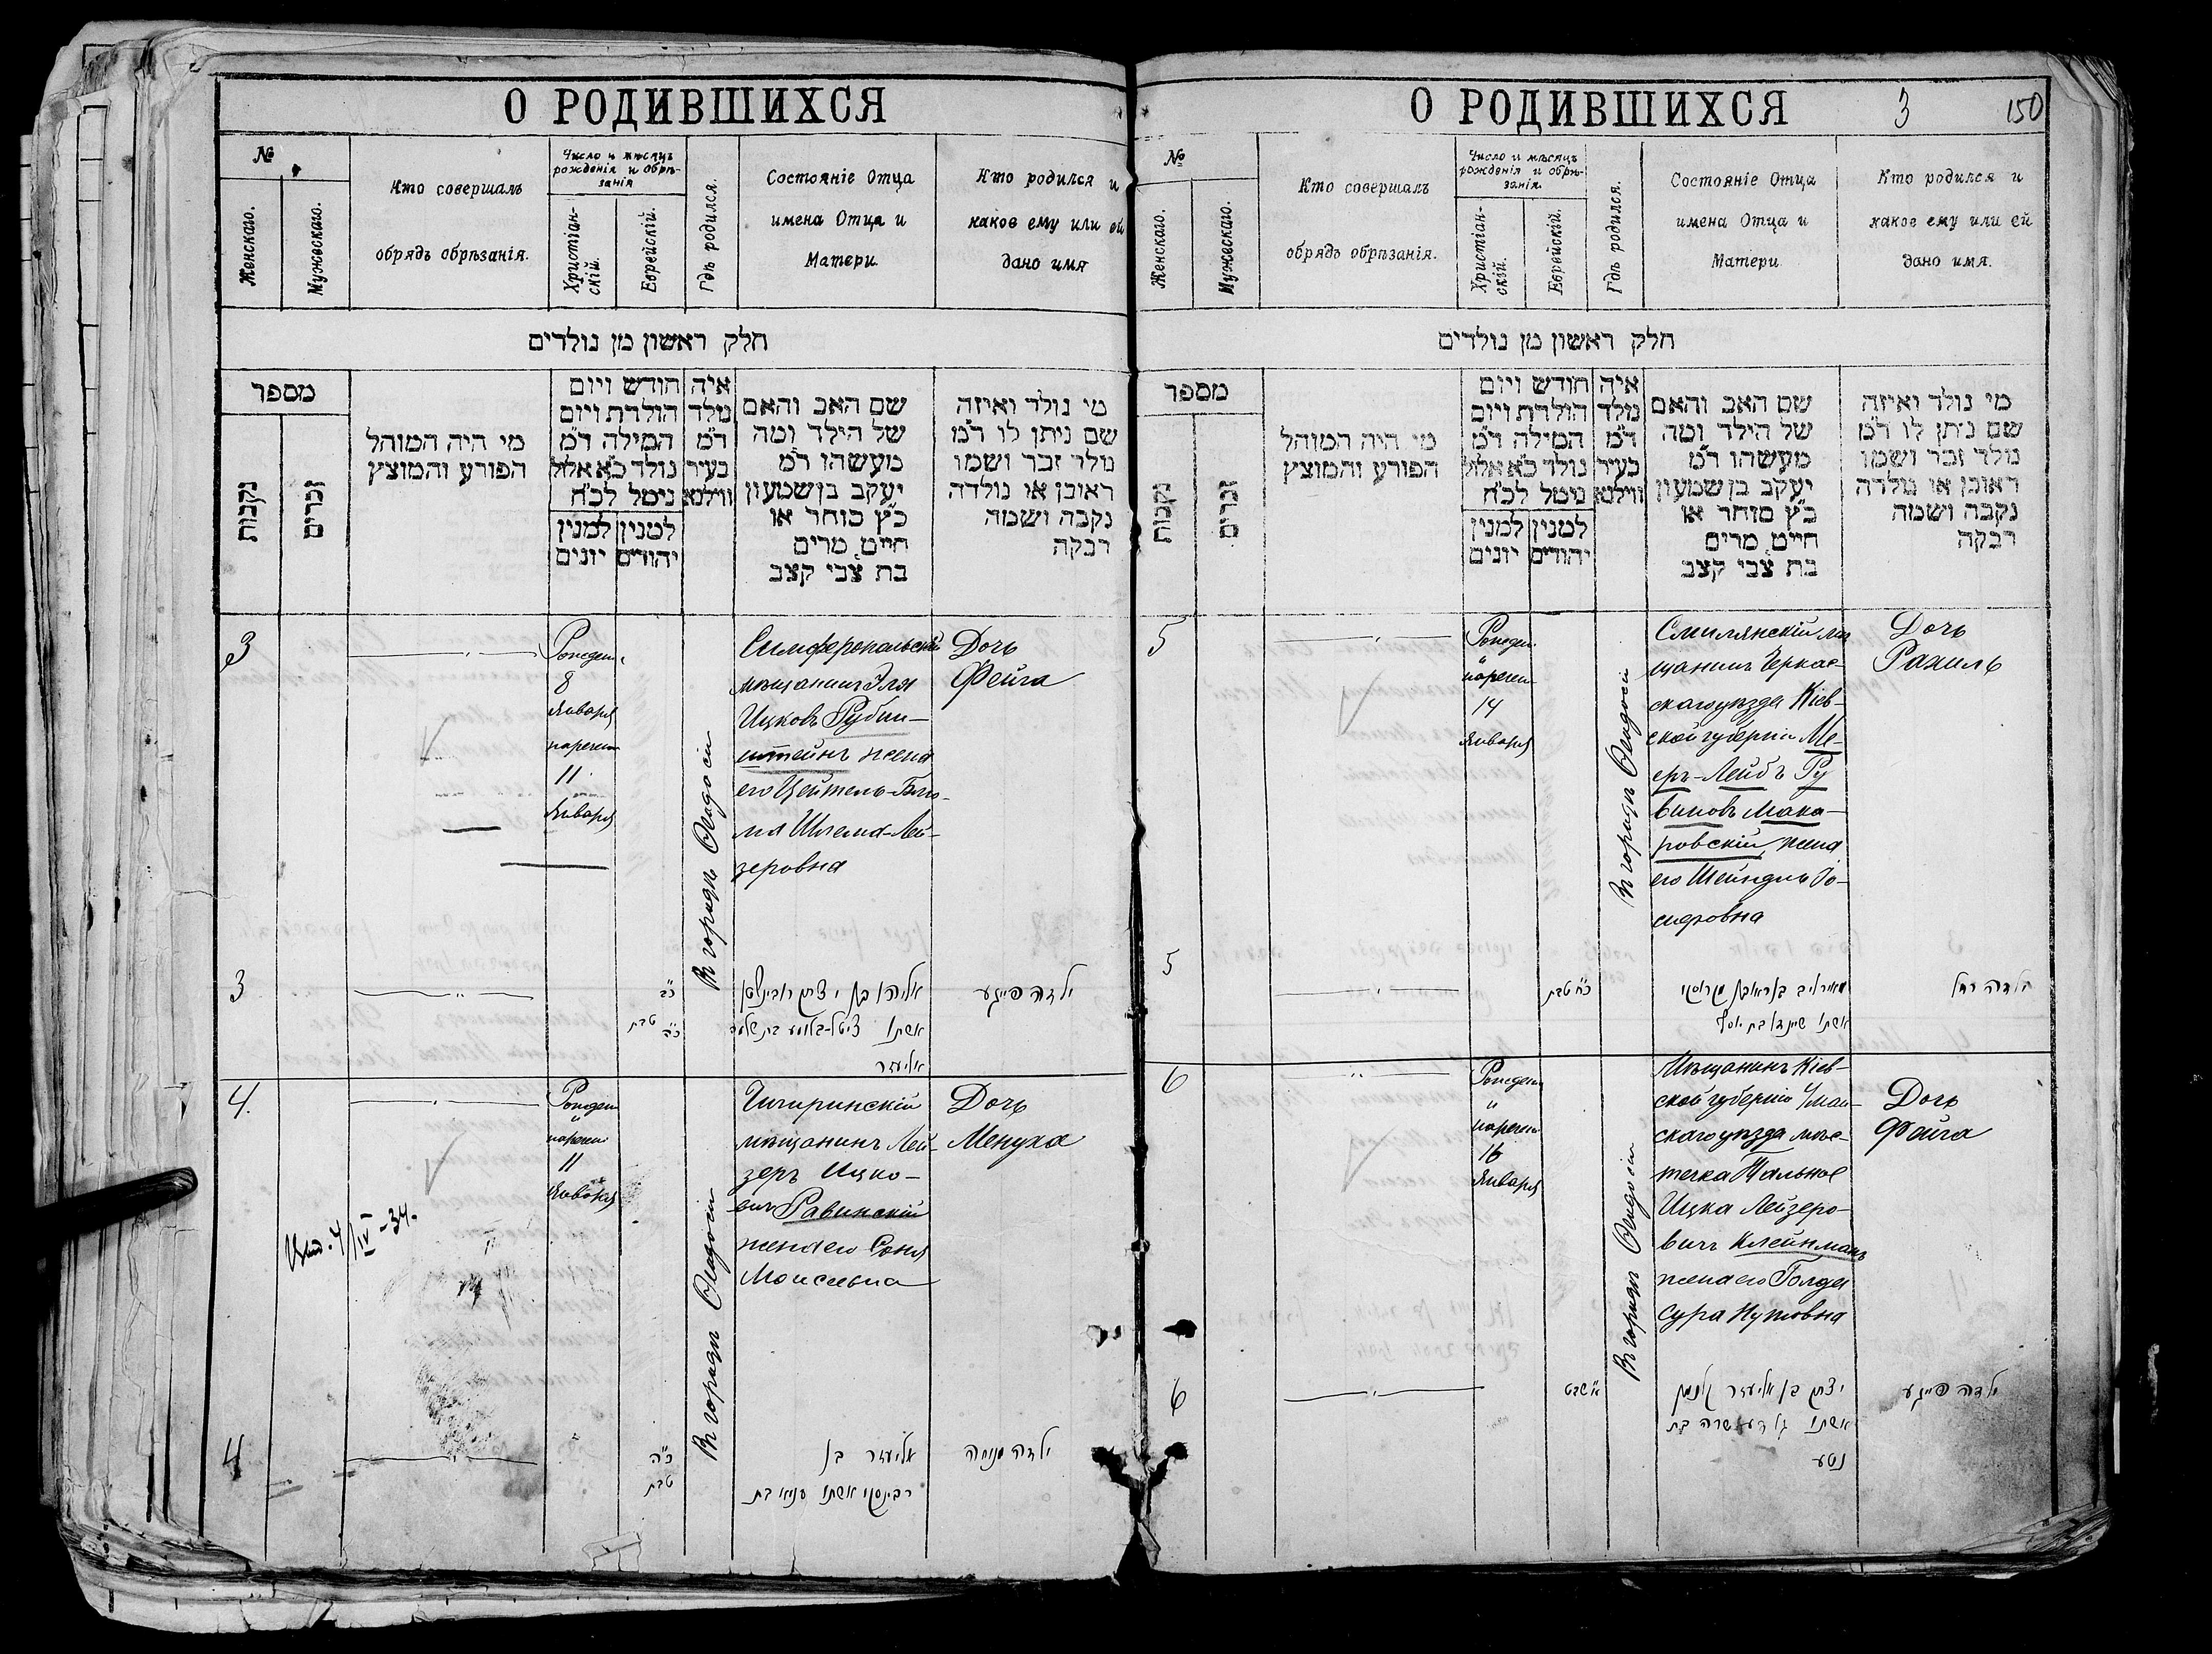 О РОДИВШИХСЯ
№
Женскаго.
Мужескаго.
Кто совершалъ
обрядъ обрѣзанія.
Число и мѣсяцъ
рожденія и обрѣ-
занія
Христіан-
скій.
Еврейскій.
Гдѣ родился.
Состояніе Отца
имена Отца и
Матери
Кто родился и
какое ему или ей
дано имя
חלק ראשון מן נולדים
מספר
נקבות
זכרים
מי היה המוהל
הפורע והמוצץ
חודש ויום
הולדת ויום
המילה ד״מ
נולד כ״א אלול
נימל לכ״ח
למנין יהודים
למנין יונים
איה
נולד
ד״מ
בעיר
ווילנא
שם האב והאם
של הילד ומה
מעשהו ד״מ
יעקב בן שמעון
כ״ץ סוחר או
חייט מרים
בת צבי קצב
מי נולד ואיזה
שם ניתן לו ד״מ
נולד זכר ושמו
ראובן או נולדה
נקבה ושמה
רבקה
3
Рожден.
8
Января
наречен
11
Января
Въ городѣ Ѳеодосіи
Симферопольскій
мѣщанинъ Эля
Ицковъ Рубин-
штейнъ жена
его Цейтель-Блю-
ма Шлема-Лей-
зеровна
Дочь
Фейга
3
כ״ב
כ״ה טבת
אליהו בן יצחק רובינשטיין
אשתו צייטל-בלומע בת שלמה
אליעזר
ילדה פייגע
4.
Рожден
и
наречен
11
Января
Въ городѣ Ѳеодосіи
Чигиринскій
мѣщанинъ Лей-
зеръ Ицко-
вичъ Равинскій
жена его Соня
Моисеевна
Дочь
Менуха
4/IV-34.
4
כ״ה
טבת
אליעזר בן
רבינסקי אשתו סוניא בת
ילדה מנוחה
О РОДИВШИХСЯ
3
150
№
Женскаго.
Мужескаго.
Кто совершалъ
обрядъ обрѣзанія.
Число и мѣсяцъ
рожденія и обрѣ-
занія.
Христіан-
скій.
Еврейскій.
Гдѣ родился.
Состояніе Отца
имена Отца и
Матери
Кто родился и
какое ему или ей
дано имя.
חלק ראשון מן נולדים
מספר
נקבות
זכרים
מי היה המוהל
הפורע והמוצץ
חודש ויום
הולדת ויום
המילה ד״מ
נולד כ״א אלול
נימל לכ״ח
למנין יהודים
למנין יונים
איה
נולד
ד״מ
בעיר
ווילנא
שם האב והאם
של הילד ומה
מעשהו ד״מ
יעקב בן שמעון
כ״ץ סוחר או
חייט מרים
בת צבי קצב
מי נולד ואיזה
שם ניתן לו ד״מ
נולד זכר ושמו
ראובן או נולדה
נקבה ושמה
רבקה
5
Рожден.
и
наречен
14
Января
Въ городѣ Ѳеодосіи
Смилянскій мѣ
щанинъ Черкас-
скаго уѣзда Кіев-
ской губерніи Ме-
еръ-Лейбъ Ру
виновъ Мака-
ровскій, жена
его Шейндль Іо-
сифовна
Дочь
Рахиль
5
כ״ח טבת
מאיר ליב בן ראובן מקרוסקי
אשתו שיינדל בת יוסף
ילדה רחל
6
Рожден
и
наречен
16
Января
Въ городѣ Ѳеодосіи
Мѣщанинъ Кіев-
ской губерніи Уман-
скаго уѣзда мѣс-
течка Тальное
Ицка Лейзеро-
вичъ Клейнманъ
жена его Голда
Сура Нутовна
Дочь
Фейга
6
א׳ שבט
יצחק בן אליעזר קליינמן
אשתו גולדע שרה בת
נטע
ילדה פייגע